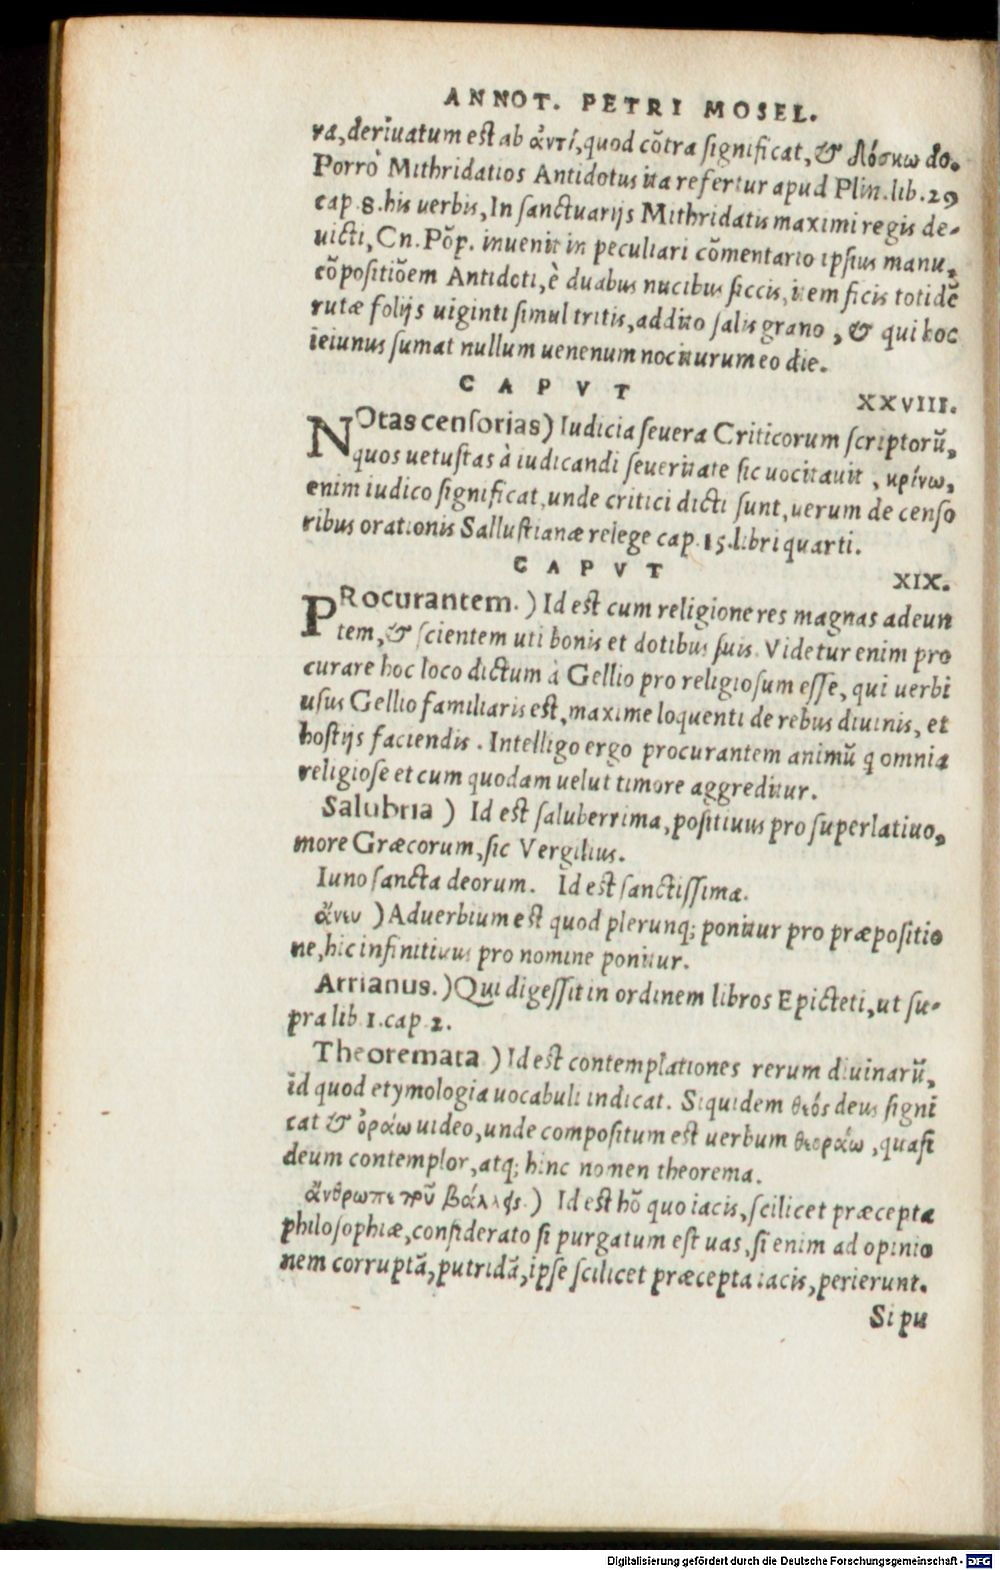 ANNOT. PETRI MOSEL.
ra, deriuatum est ab ἀντί, quod cõtra significat, & δόσκω do.
Porrò Mithridatios Antidotus ita refertur apud Plin. lib. 29
cap. 8. his uerbis, In sanctuarijs Mithridatis maximi regis de-
uicti, Cn. Põp. inuenit in peculiari cõmentario ipsius manu,
cõpositiõem Antidoti, è duabus nucibus siccis, item ficis totidẽ
rutæ folijs uiginti simul tritis, addito salis grano, & qui hoc
ieiunus sumat nullum uenenum nociturum eo die.
CAPVT XXVIII.
NOtas censorias) Iudicia seuera Criticorum scriptorũ,
quos uetustas à iudicandi seueritate sic uocitauit, κρίνω,
enim iudico significat, unde critici dicti sunt, uerum de censo
ribus orationis Sallustianæ relege cap. 15. libri quarti.
CAPVT XIX.
PRocurantem.) Id est cum religione res magnas adeun
tem, & scientem uti bonis et dotibus suis. Videtur enim pro
curare hoc loco dictum à Gellio pro religiosum esse, qui uerbi
usus Gellio familiaris est, maxime loquenti de rebus diuinis, et
hostijs faciendis. Intelligo ergo procurantem animũ q omnia
religiose et cum quodam uelut timore aggreditur.
Salubria) Id est saluberrima, positiuus pro superlatiuo,
more Græcorum, sic Vergilius.
Iuno sancta deorum. Id est sanctissima.
ἄνευ) Aduerbium est quod plerunq; ponitur pro præpositio
ne, hic infinitiuus pro nomine ponitur.
Arrianus.) Qui digessit in ordinem libros Epicteti, ut su-
pra lib. 1. cap. 2.
Theoremata) Id est contemplationes rerum diuinarũ,
id quod etymologia uocabuli indicat. Siquidem θεός deus signi
cat & ὁράω uideo, unde compositum est uerbum θεοράω, quasi
deum contemplor, atq; hinc nomen theorema.
ἄνθρωπε ποῦ βάλλεις.) Id est hõ quo iacis, scilicet præcepta
philosophiæ, considerato si purgatum est uas, si enim ad opinio
nem corruptã, putridã, ipse scilicet præcepta iacis, perierunt.
Si pu
Digitalisierung gefördert durch die Deutsche Forschungsgemeinschaft - DFG